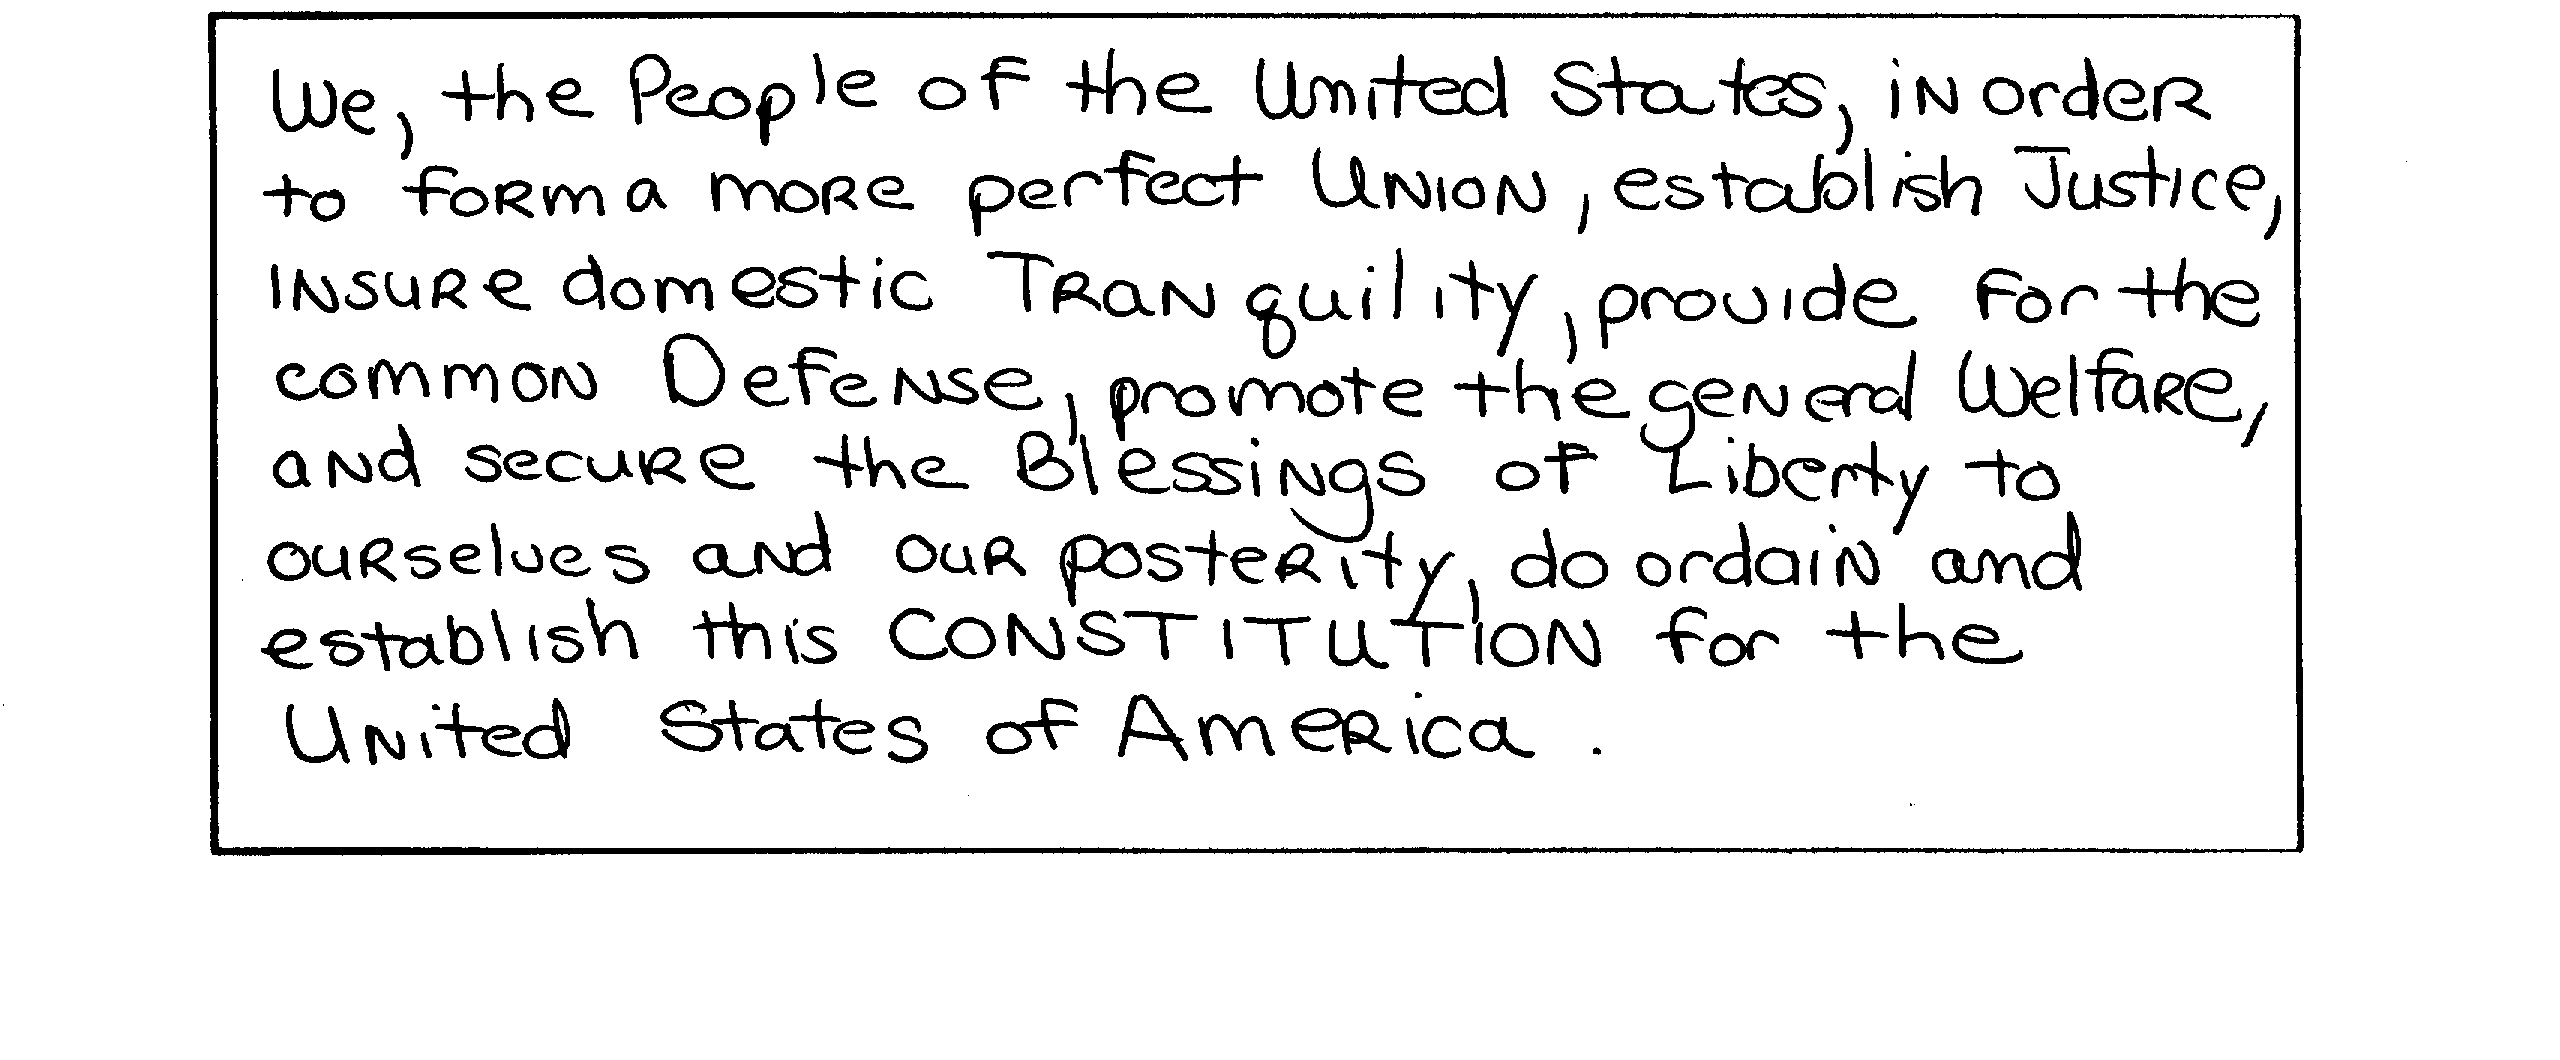 We, the People of the United States, in order
to form a more perfect Union, establish Justice,
insure domestic Tranquility, provide for the
common Defense, promote the general Welfare,
and secure the Blessings of Liberty to
ourselves and our posterity, do ordain and
establish this CONSTITUTION for the
United States of America.